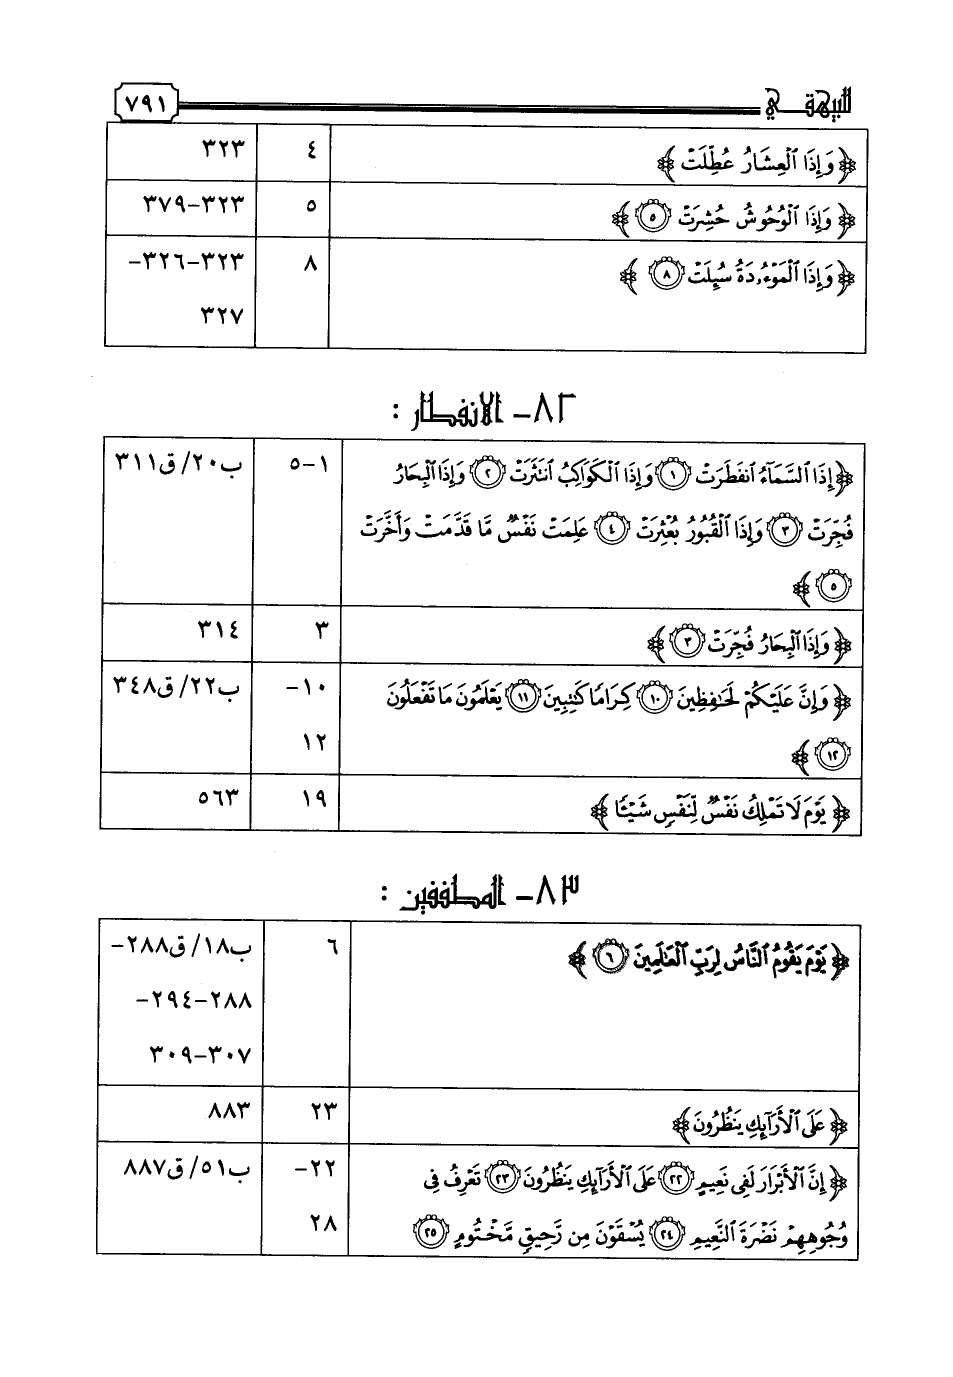 للبيهقي ٧٩١
﴿ وَإِذَا ٱلْعِشَارُ عُطِّلَتْ ﴾ ٤ ٣٢٣
﴿ وَإِذَا ٱلْوُحُوشُ حُشِرَتْ ٥ ﴾ ٥ ٣٢٣-٣٧٩
﴿ وَإِذَا ٱلْمَوْءُۥدَةُ سُئِلَتْ ٨ ﴾ ٨ ٣٢٣-٣٢٦-
٣٢٧
٨٢- الانفطار :
﴿ إِذَا ٱلسَّمَآءُ ٱنفَطَرَتْ ١ وَإِذَا ٱلْكَوَاكِبُ ٱنتَثَرَتْ ٢ وَإِذَا ٱلْبِحَارُ ١-٥ ب٢٠/ق٣١١
فُجِّرَتْ ٣ وَإِذَا ٱلْقُبُورُ بُعْثِرَتْ ٤ عَلِمَتْ نَفْسٌ مَّا قَدَّمَتْ وَأَخَّرَتْ
٥ ﴾
﴿ وَإِذَا ٱلْبِحَارُ فُجِّرَتْ ٣ ﴾ ٣ ٣١٤
﴿ وَإِنَّ عَلَيْكُمْ لَحَٰفِظِينَ ١٠ كِرَامًا كَٰتِبِينَ ١١ يَعْلَمُونَ مَا تَفْعَلُونَ ١٠- ب٢٢/ق٣٤٨
١٢ ﴾ ١٢
﴿ يَوْمَ لَا تَمْلِكُ نَفْسٌ لِّنَفْسٍ شَيْـًٔا ﴾ ١٩ ٥٦٣
٨٣- المطففين :
﴿ يَوْمَ يَقُومُ ٱلنَّاسُ لِرَبِّ ٱلْعَٰلَمِينَ ٦ ﴾ ٦ ب١٨/ق٢٨٨-
٢٨٨-٢٩٤-
٣٠٧-٣٠٩
﴿ عَلَى ٱلْأَرَآئِكِ يَنظُرُونَ ﴾ ٢٣ ٨٨٣
﴿ إِنَّ ٱلْأَبْرَارَ لَفِى نَعِيمٍ ٢٢ عَلَى ٱلْأَرَآئِكِ يَنظُرُونَ ٢٣ تَعْرِفُ فِى ٢٢- ب٥١/ق٨٨٧
وُجُوهِهِمْ نَضْرَةَ ٱلنَّعِيمِ ٢٤ يُسْقَوْنَ مِن رَّحِيقٍ مَّخْتُومٍ ٢٥ ٢٨